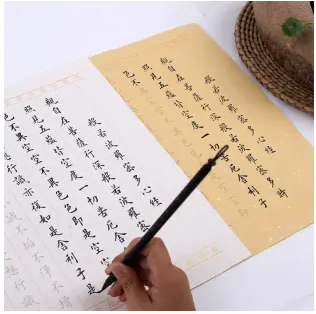 般若波羅蜜多心經
觀自在菩薩行深般若波羅蜜多
照見五蘊皆空度一切苦厄舍利子
色不
般若波羅蜜多心經
觀自在菩薩行深般若波羅蜜多
照見五蘊皆空度一切苦厄舍
色不異空空不異色色即是空空
想行識亦復如是舍利子是
滅不垢不淨不增
想行識